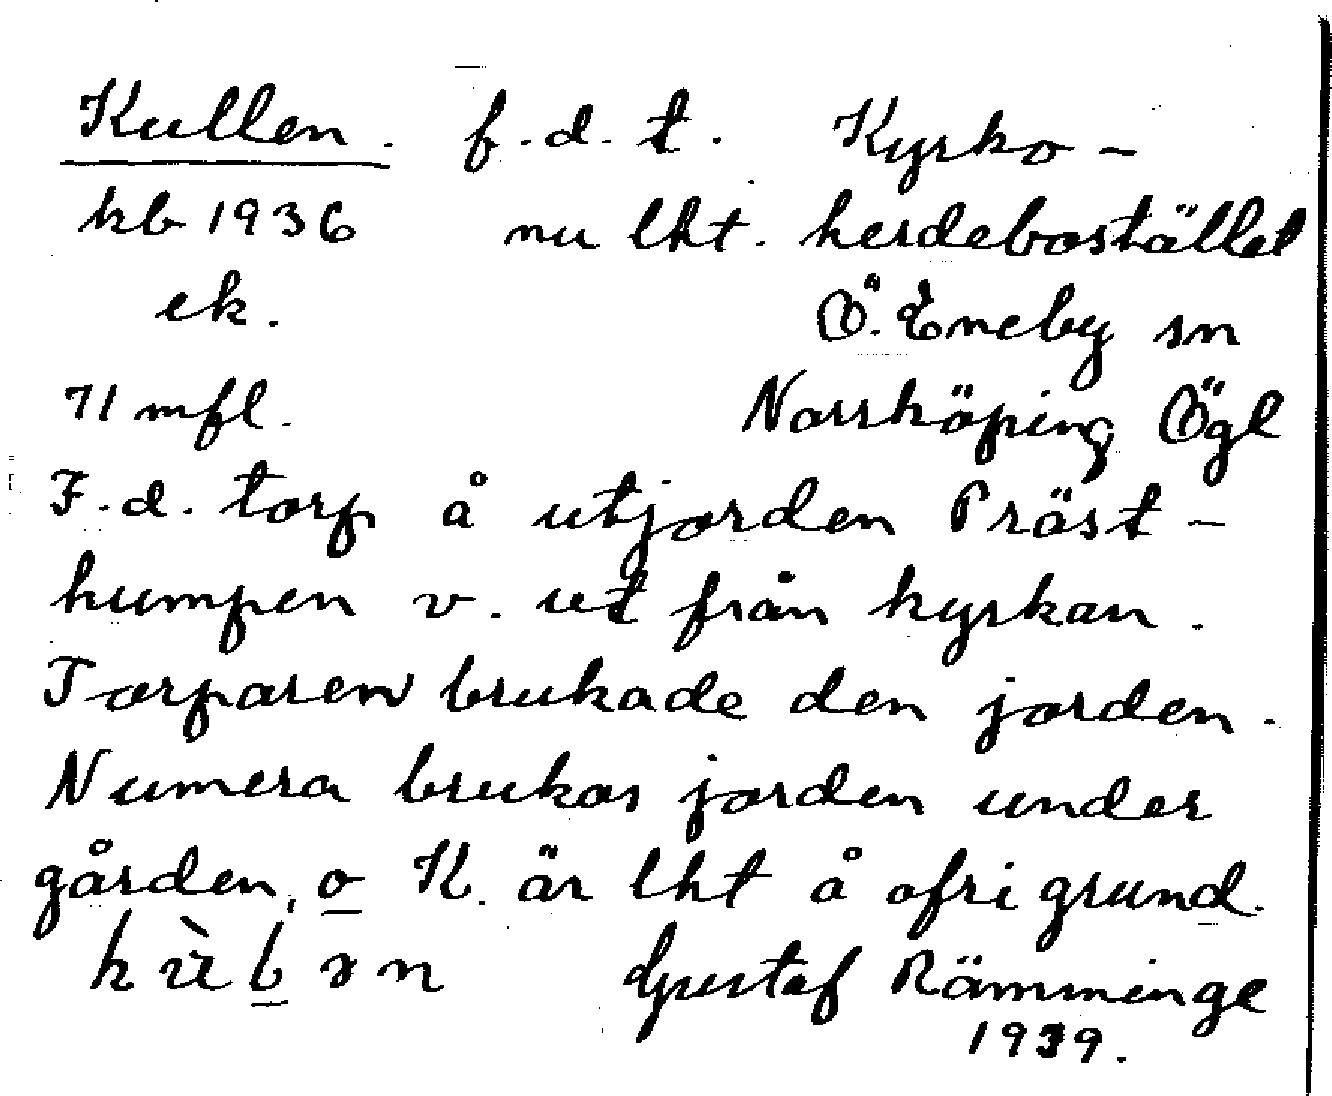 Kullen. f.d.t. Kyrko-
kb 1936 nu lht. herdebostället
ek. Ö. Eneby sn
71 mfl. Norrköping Ögl
F.d. torp å utjorden Präst-
humpen v. ut från kyrkan.
Torparen brukade den jorden.
Numera brukas jorden under
gården, o K. är lht å ofri grund.
Gustaf Rämminge
1939.